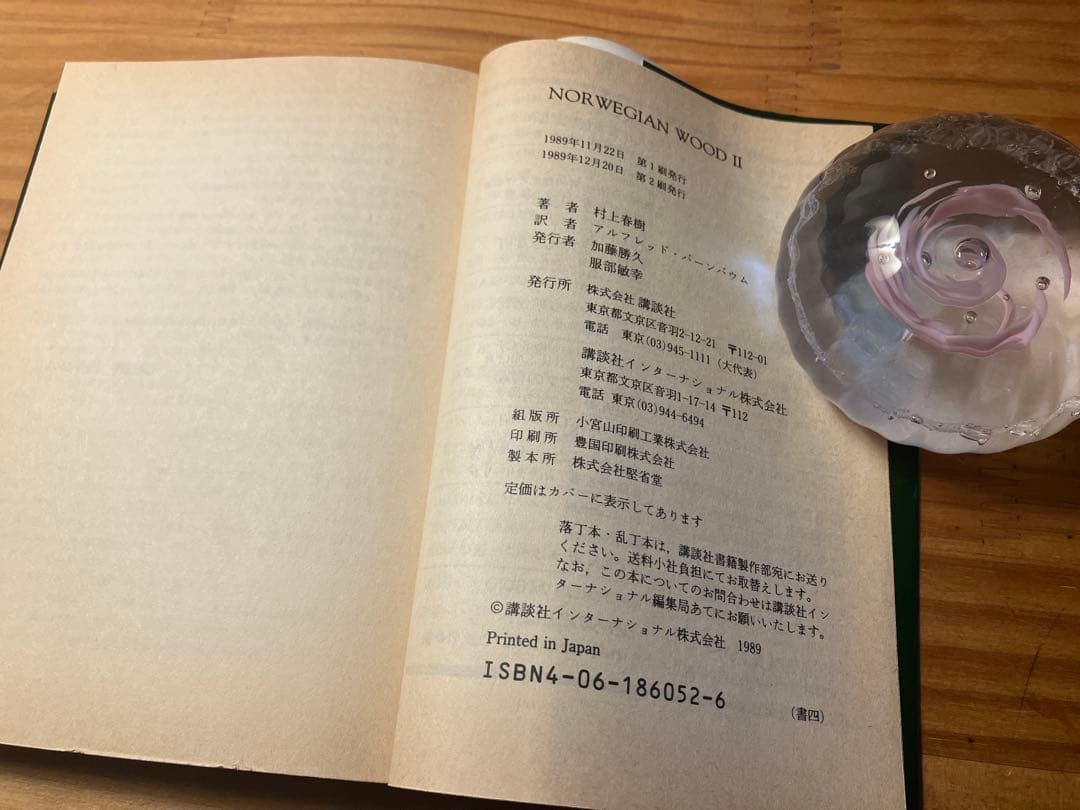 NORWEGIAN WOOD II
1989年11月22日 第1刷発行
1989年12月20日 第2刷発行
著 者 村上春樹
訳 者 アルフレッド・バーンバウム
発行者 加藤勝久
服部敏幸
発行所 株式会社 講談社
東京都文京区音羽2-12-21 〒112-01
電話 東京(03)945-1111 (大代表)
講談社インターナショナル株式会社
東京都文京区音羽1-17-14 〒112
電話 東京(03)944-6494
組版所 小宮山印刷工業株式会社
印刷所 豊国印刷株式会社
製本所 株式会社堅省堂
定価はカバーに表示してあります
落丁本・乱丁本は，講談社書籍製作部宛にお送り
ください。送料小社負担にてお取替えします。
なお，この本についてのお問合わせは講談社イン
ターナショナル編集局あてにお願いいたします。
©講談社インターナショナル株式会社 1989
Printed in Japan
ISBN4-06-186052-6
(書四)